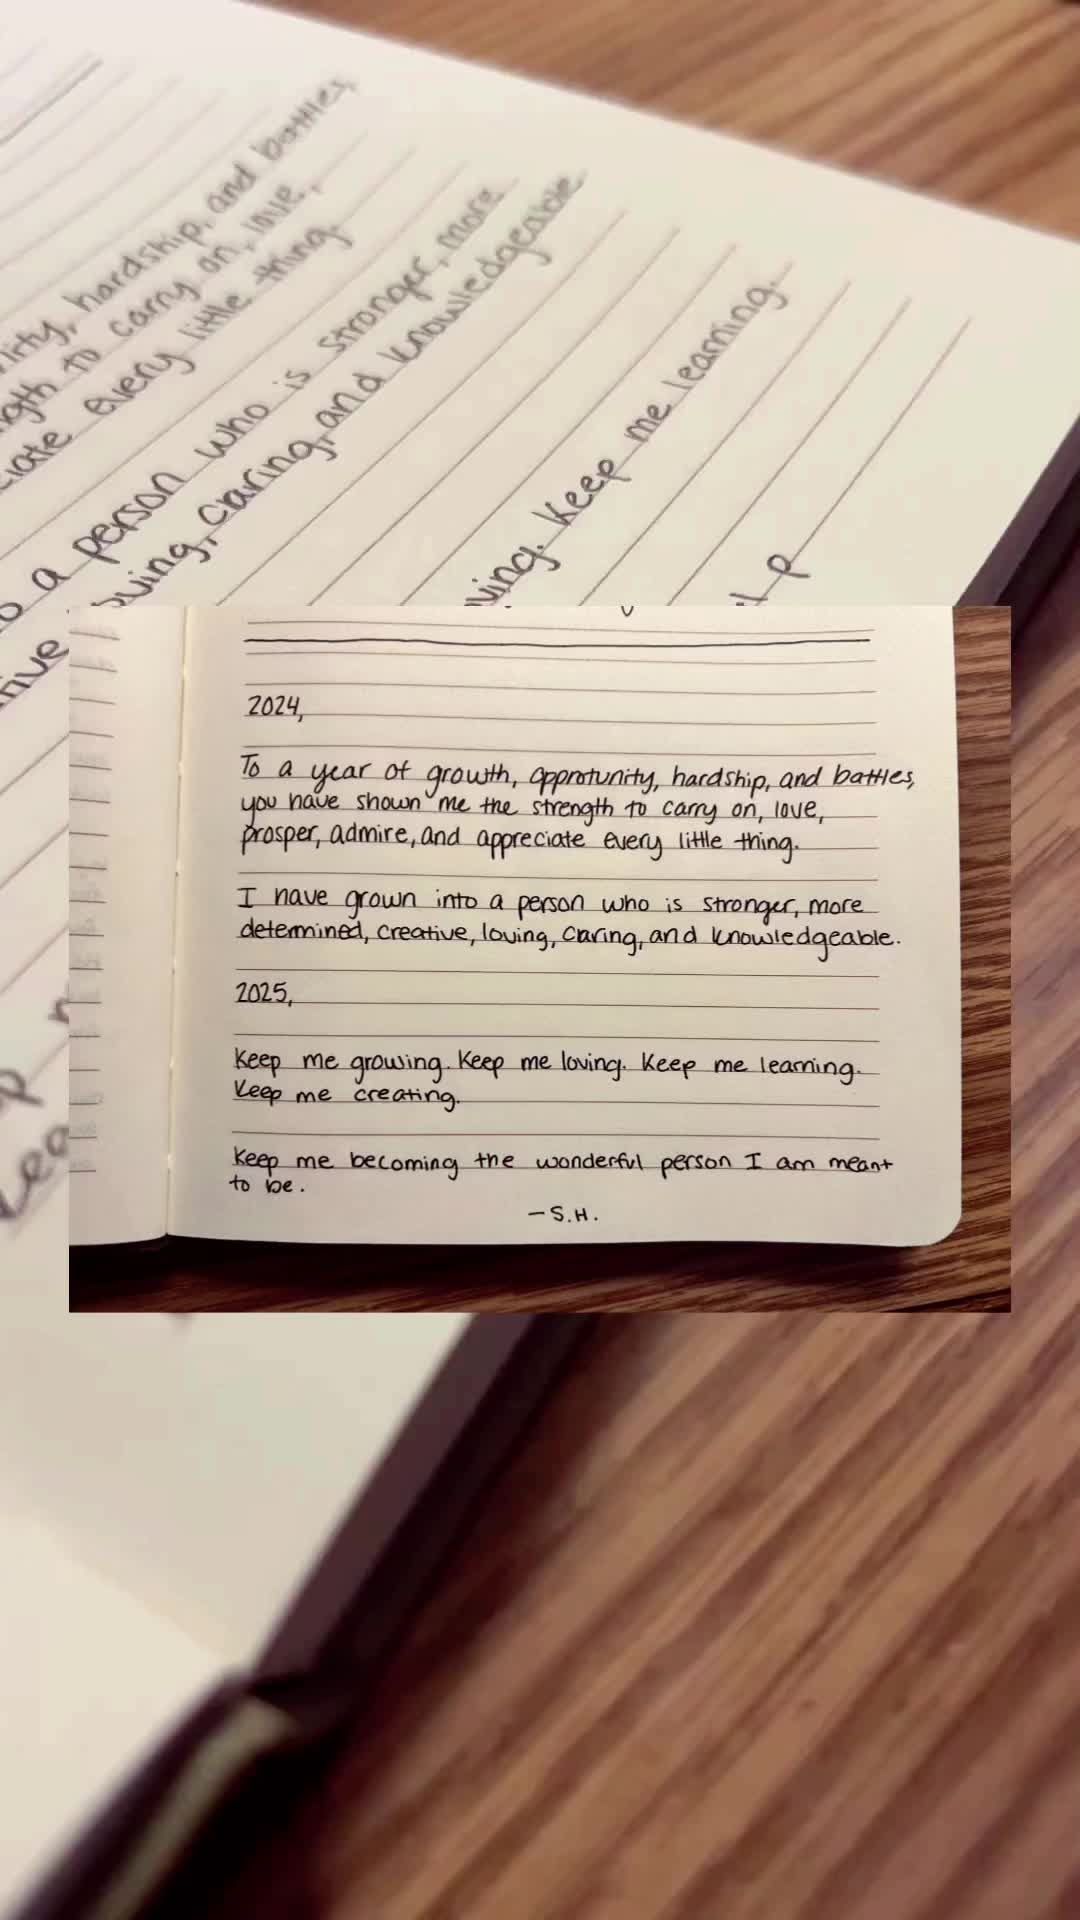 lity, hardship, and battles,
ngth to carry on, love,
ciate every little thing.
o a person who is stronger, more
oving, caring, and knowledgeable.
ving. Keep me learning.
2024,
To a year of growth, opprotunity, hardship, and battles,
you have shown me the strength to carry on, love,
prosper, admire, and appreciate every little thing.
I have grown into a person who is stronger, more
determined, creative, loving, caring, and knowledgeable.
2025,
Keep me growing. Keep me loving. Keep me learning.
Keep me creating.
Keep me becoming the wonderful person I am meant
to be.
—S.H.